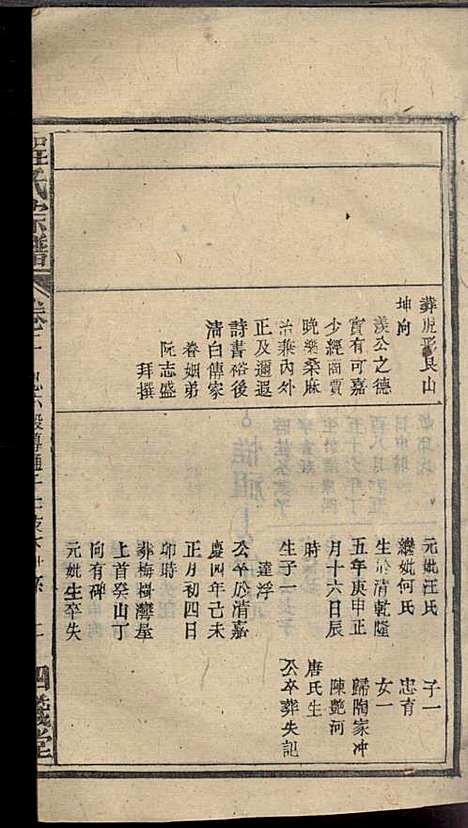 葬虎形艮山
坤向
羨公之德
實有可嘉
少經商賈
晩樂桑麻
治兼內外
正及邇遐
詩書裕後
清白傳家
眷姻弟
阮志盛
拜撰
元妣汪氏
子一
繼妣何氏
忠有
生於清乾隆
女一
五年庚申正
歸陶家冲
月十六日辰
陳艷河
時
唐氏生
生子一
公卒葬失記
達浮
公卒於清嘉
慶四年己未
正月初四日
卯時
葬梅樹灣屋
上首癸山丁
向有碑
元妣生卒失
氏宗譜
卷
堂